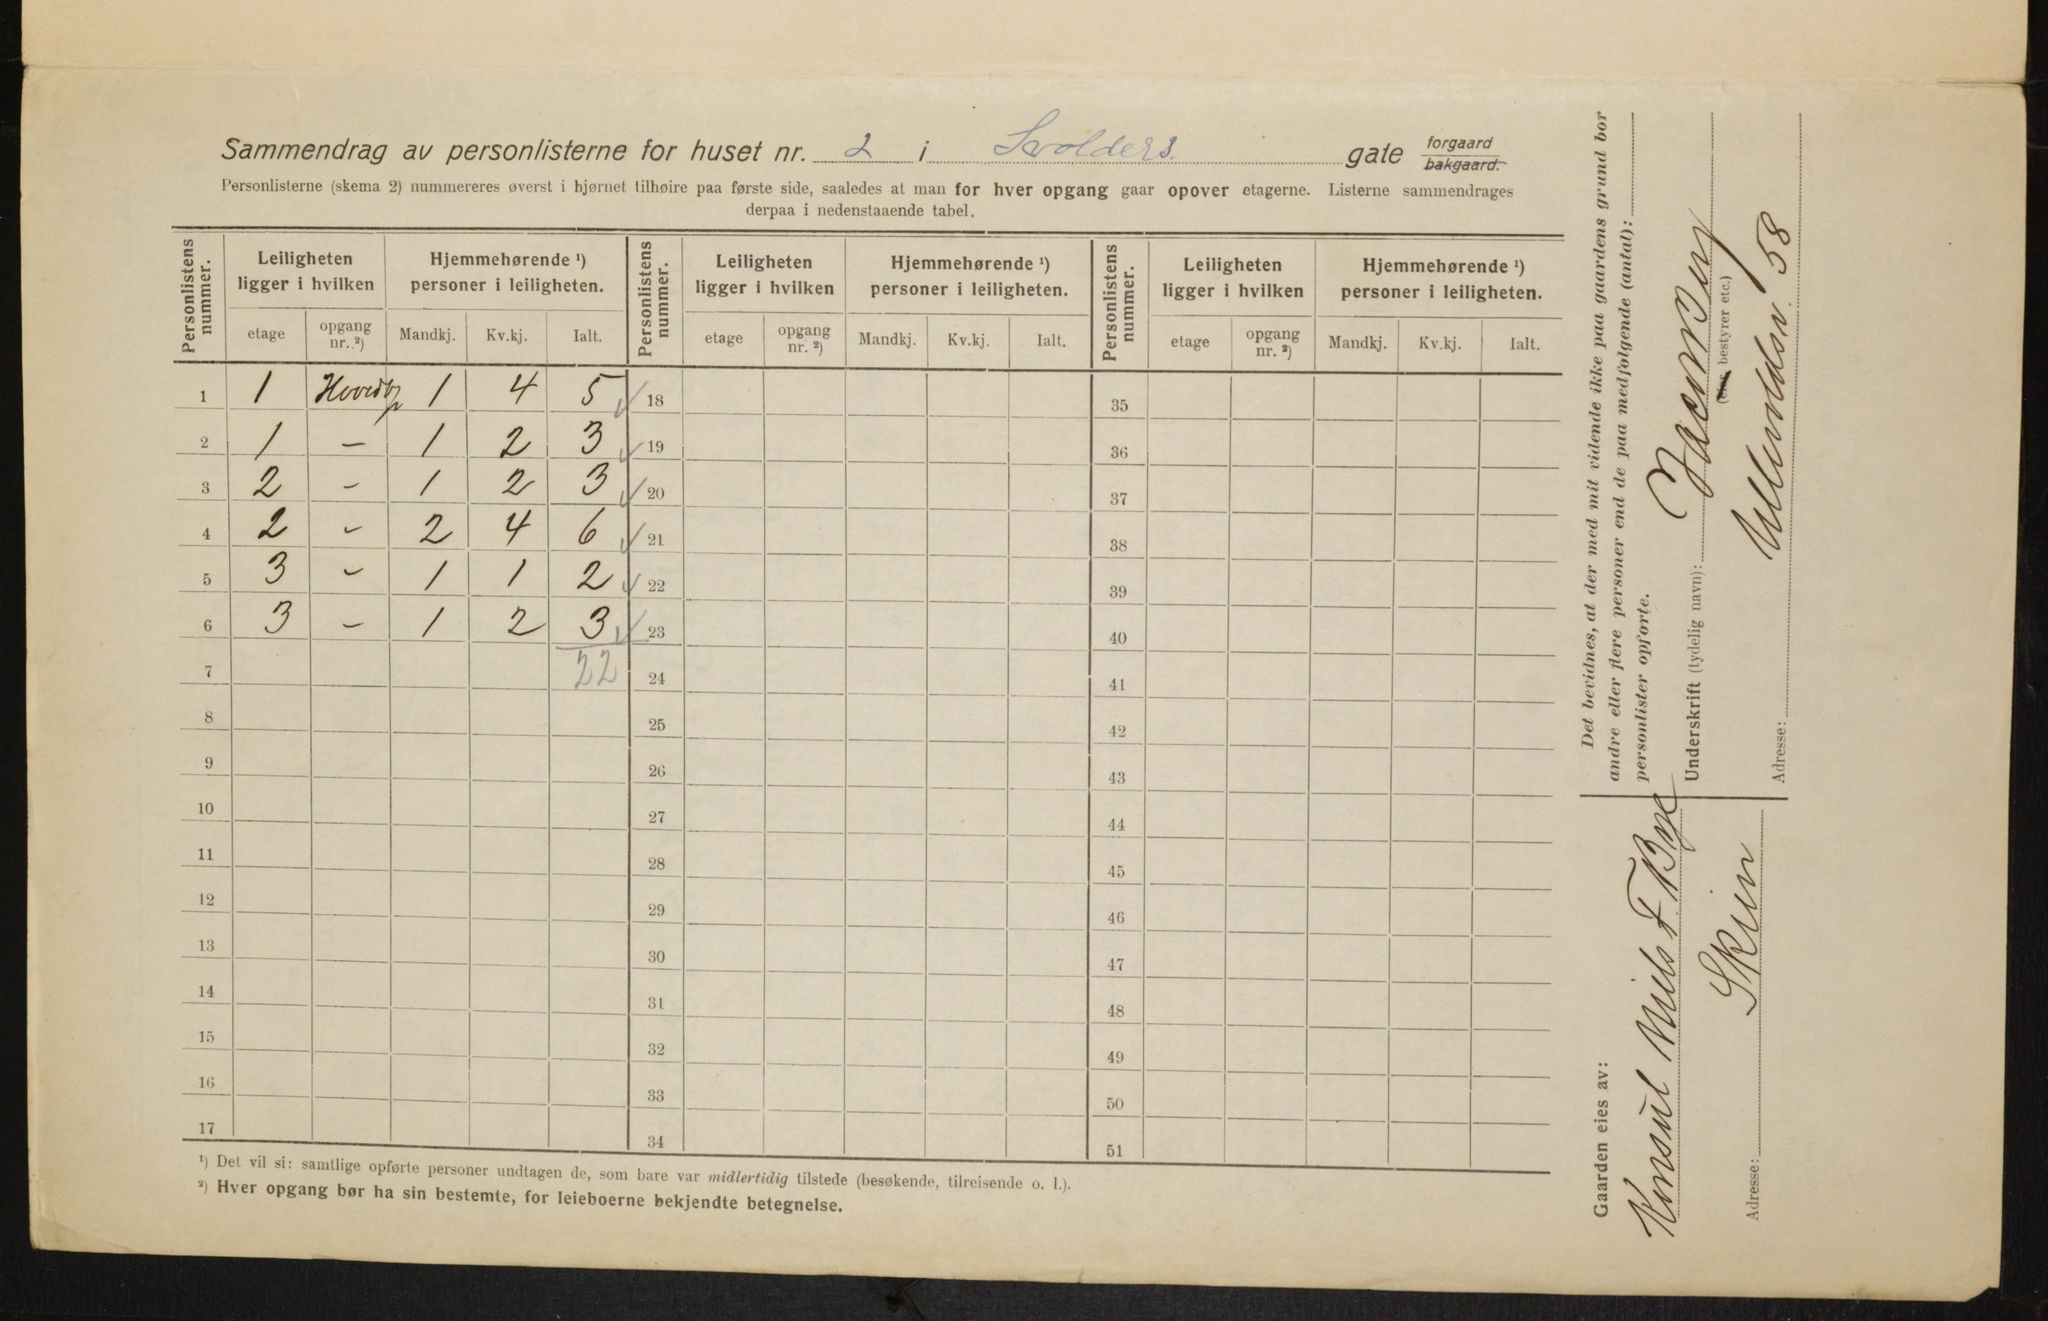 Sammendrag av personlisterne for huset nr. 2 i Svolders gate forgaard bakgaard.
Personlisterne (skema 2) nummereres øverst i hjørnet tilhøire paa første side, saaledes at man for hver opgang gaar opover etagerne. Listerne sammendrages
derpaa i nedenstaaende tabel.
Personlistens nummer. Leiligheten ligger i hvilken Hjemmehørende ¹) personer i leiligheten. Personlistens nummer. Leiligheten ligger i hvilken Hjemmehørende ¹) personer i leiligheten. Personlistens nummer. Leiligheten ligger i hvilken Hjemmehørende ¹) personer i leiligheten.
etage opgang nr. ²) Mandkj. Kv.kj. Ialt. etage opgang nr. ²) Mandkj. Kv.kj. Ialt. etage opgang nr. ²) Mandkj. Kv.kj. Ialt.
1 1 Hovedop 1 4 5 18 35
2 1 – 1 2 3 19 36
3 2 – 1 2 3 20 37
4 2 – 2 4 6 21 38
5 3 – 1 1 2 22 39
6 3 – 1 2 3 23 40
7 22 24 41
8 25 42
9 26 43
10 27 44
11 28 45
12 29 46
13 30 47
14 31 48
15 32 49
16 33 50
17 34 51
¹) Det vil si: samtlige opførte personer undtagen de, som bare var midlertidig tilstede (besøkende, tilreisende o. l.).
²) Hver opgang bør ha sin bestemte, for leieboerne bekjendte betegnelse.
Det bevidnes, at der med mit vidende ikke paa gaardens grund bor
andre eller flere personer end de paa medfølgende (antal):
personlister opførte.
Underskrift (tydelig navn):
(eier bestyrer etc.)
Adresse: 58
Gaarden eies av:
Konsul Niels F. Bye
Adresse: Skien